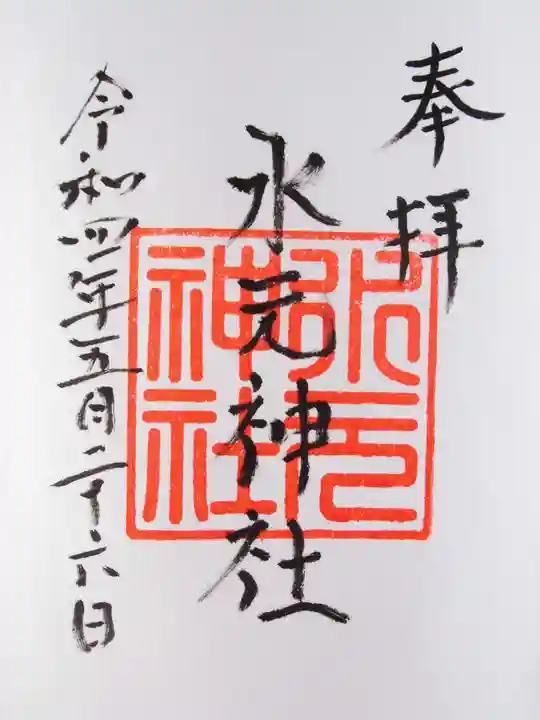 奉拝
水元神社
令和四年五月二十六日